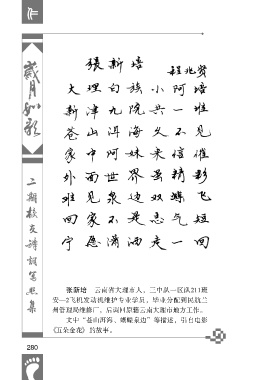 岁月如歌
二期校友诗词笔墨集
张新培
程兆贤
大理白族小阿培
新津九院共一堆
苍山洱海久不见
家中阿妹来信催
外面世界虽精彩
难见泉边双蝶飞
回家不是志气短
宁愿潇洒走一回
张新培 云南省大理市人，三中队一区队211班
安—2飞机发动机维护专业学员，毕业分配到民航兰
州管理局维修厂，后调回原籍云南大理市地方工作。
文中“苍山洱海、蝴蝶泉边”等描述，引自电影
《五朵金花》的故事。
280